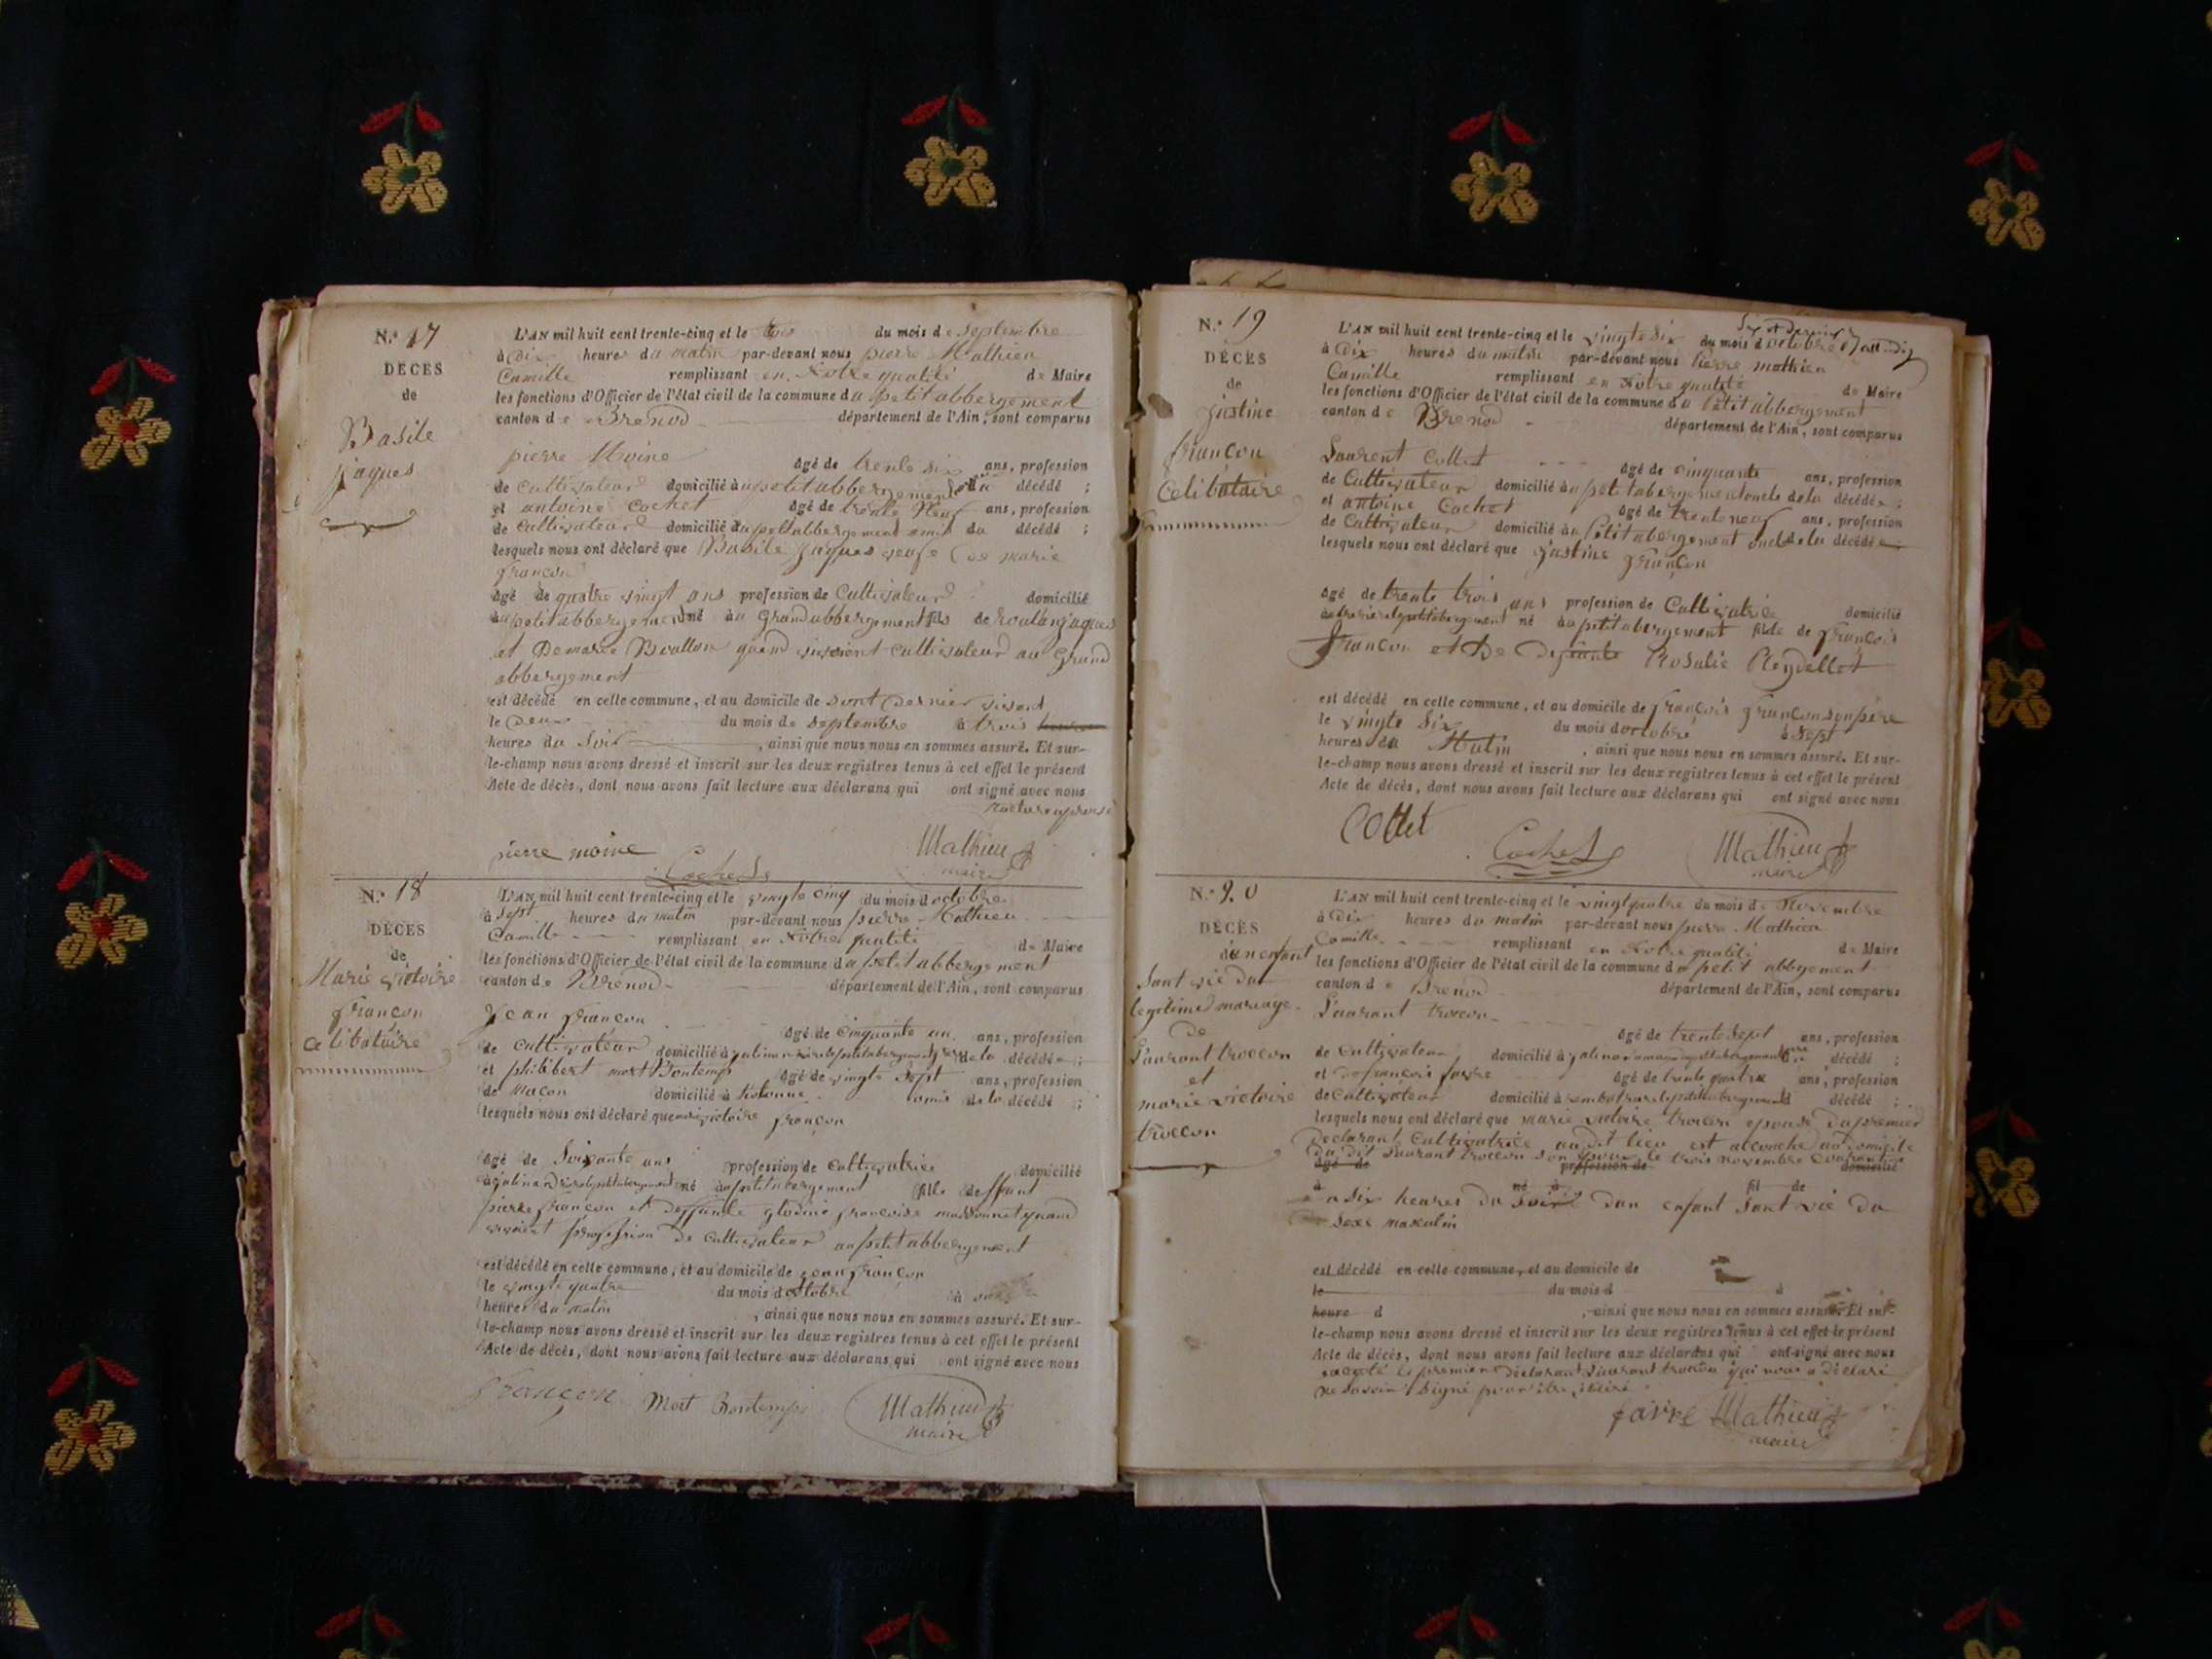 N.º 17
DÉCÈS
de
Basile
jaques
L'AN mil huit cent trente-cinq et le trois du mois de septembre
à dix heures du matin par-devant nous pierre Mathieu
Camille remplissant en Notre qualité de Maire
les fonctions d'Officier de l'état civil de la commune du petit abbergement
canton de Brenod département de l'Ain, sont comparus
pierre Moine âgé de trente six ans, profession
de Cultivateur domicilié au petit abbergement du décédé ;
et antoine Cochet âgé de trente Neuf ans, profession
de Cultivateur domicilié au petit abbergement amis du décédé ;
lesquels nous ont déclaré que Basile jaques veuf de marie
françon
âgé de quatre vingt ans profession de Cultivateur domicilié
au petit abbergement né au Grand abbergement fils de jaques
et De marie quand vivoient Cultivateur au Grand
abbergement
est décédé en celle commune, et au domicile de dernier vivant
le Deux du mois de septembre à trois
heures du Soir , ainsi que nous nous en sommes assuré. Et sur-
le-champ nous avons dressé et inscrit sur les deux registres tenus à cet effet le présent
Acte de décès, dont nous avons fait lecture aux déclarans qui ont signé avec nous
pierre moine Cochet Mathieu
maire
N.º 18
DÉCÈS
de
Marie victoire
françon
celibataire
L'AN mil huit cent trente-cinq et le vingte cinq du mois d octobre
à sept heures du matin par-devant nous pierre Mathieu
Camille remplissant en Notre qualité de Maire
les fonctions d'Officier de l'état civil de la commune du petit abbergement
canton de Brenod département de l'Ain, sont comparus
Jean françon âgé de Cinquante un ans, profession
de Cultivateur domicilié à de la décédée ;
et philibert mort Bontemps âgé de vingte Sept ans, profession
de Maçon domicilié à amis de la décédé ;
lesquels nous ont déclaré que marie victoire françon
âgé de Soixante ans profession de Cultivatrice domicilié
à né au petit abergement fille de
pierre françon et françoise quand
vivoient profession de Cultivateur au petit abbergement
est décédé en celle commune, et au domicile de jean françon
le vingte quatre du mois d octobre à
heures du matin , ainsi que nous nous en sommes assuré. Et sur-
le-champ nous avons dressé et inscrit sur les deux registres tenus à cet effet le présent
Acte de décès, dont nous avons fait lecture aux déclarans qui ont signé avec nous
françon Mort Bontemps Mathieu
maire
N.º 19
DÉCÈS
de
justine
françon
Celibataire
L'AN mil huit cent trente-cinq et le vingte six du mois d octobre
à dix heures du matin par-devant nous Pierre mathieu
Camille remplissant en Notre qualité de Maire
les fonctions d'Officier de l'état civil de la commune du Petit abbergement
canton de Brenod département de l'Ain, sont comparus
Laurent Collet âgé de Cinquante ans, profession
de Cultivateur domicilié au petit abergement oncle de la décédée ;
et antoine Cochet âgé de trente neuf ans, profession
de Cultivateur domicilié au Petit abergement oncle de la décédée ;
lesquels nous ont déclaré que justine françon
âgé de trente trois ans profession de Cultivatrice domicilié
né au petit abergement fille de françois
françon et De Rosalie
est décédé en celle commune, et au domicile de françois françon son père
le vingte Six du mois d octobre à Sept
heures du Matin , ainsi que nous nous en sommes assuré. Et sur-
le-champ nous avons dressé et inscrit sur les deux registres tenus à cet effet le présent
Acte de décès, dont nous avons fait lecture aux déclarans qui ont signé avec nous
Collet Cochet Mathieu
maire
N.º 20
DÉCÈS
d'un enfant
Sant vie du
legitime mariage
de
Laurant troccon
et
marie victoire
troccon
L'AN mil huit cent trente-cinq et le vingt quatre du mois de Novembre
à dix heures du matin par-devant nous pierre Mathieu
Camille remplissant en Notre qualité de Maire
les fonctions d'Officier de l'état civil de la commune du petit abbgement
canton de Brenod département de l'Ain, sont comparus
Laurant troccon âgé de trente Sept ans, profession
de Cultivateur domicilié à décédé ;
et françois favre âgé de trente quatre ans, profession
de Cultivateur domicilié à décédé ;
lesquels nous ont déclaré que marie victoire troccon epouse du premier
declarant Cultivatrice au dit lieu est accouché au domicile
du dit Laurant troccon son epoux le trois novembre courant
âgé de profession de domicilié
né à fil de
à six heures du Soir d'un enfant Sant vie du
Sexe masculin
est décédé en celle commune, et au domicile de
le du mois d à
heure d , ainsi que nous nous en sommes assuré. Et sur-
le-champ nous avons dressé et inscrit sur les deux registres tenus à cet effet le présent
Acte de décès, dont nous avons fait lecture aux déclarans qui ont signé avec nous
le premier declarant Laurant troccon qui nous a déclaré
ne Savoir Signé
favre Mathieu
maire